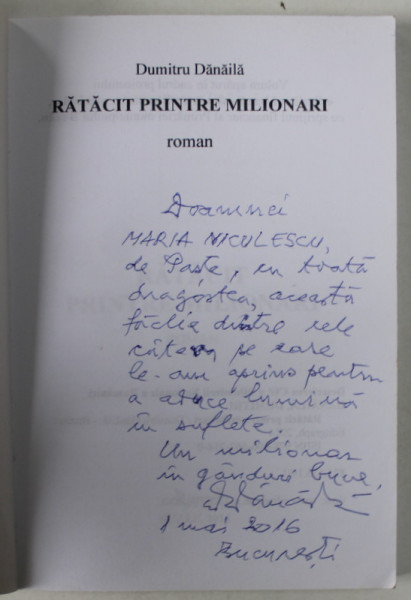 Dumitru Dănăilă
RĂTĂCIT PRINTRE MILIONARI
roman
Doamnei
MARIA NICULESCU,
de Paște, cu toată
dragostea, această
făclie dintre cele
câteva pe care
le-am aprins pentru
a aduce lumină
în suflete.
Un milionar
în gânduri bune,
DDănăilă
1 mai 2016
București